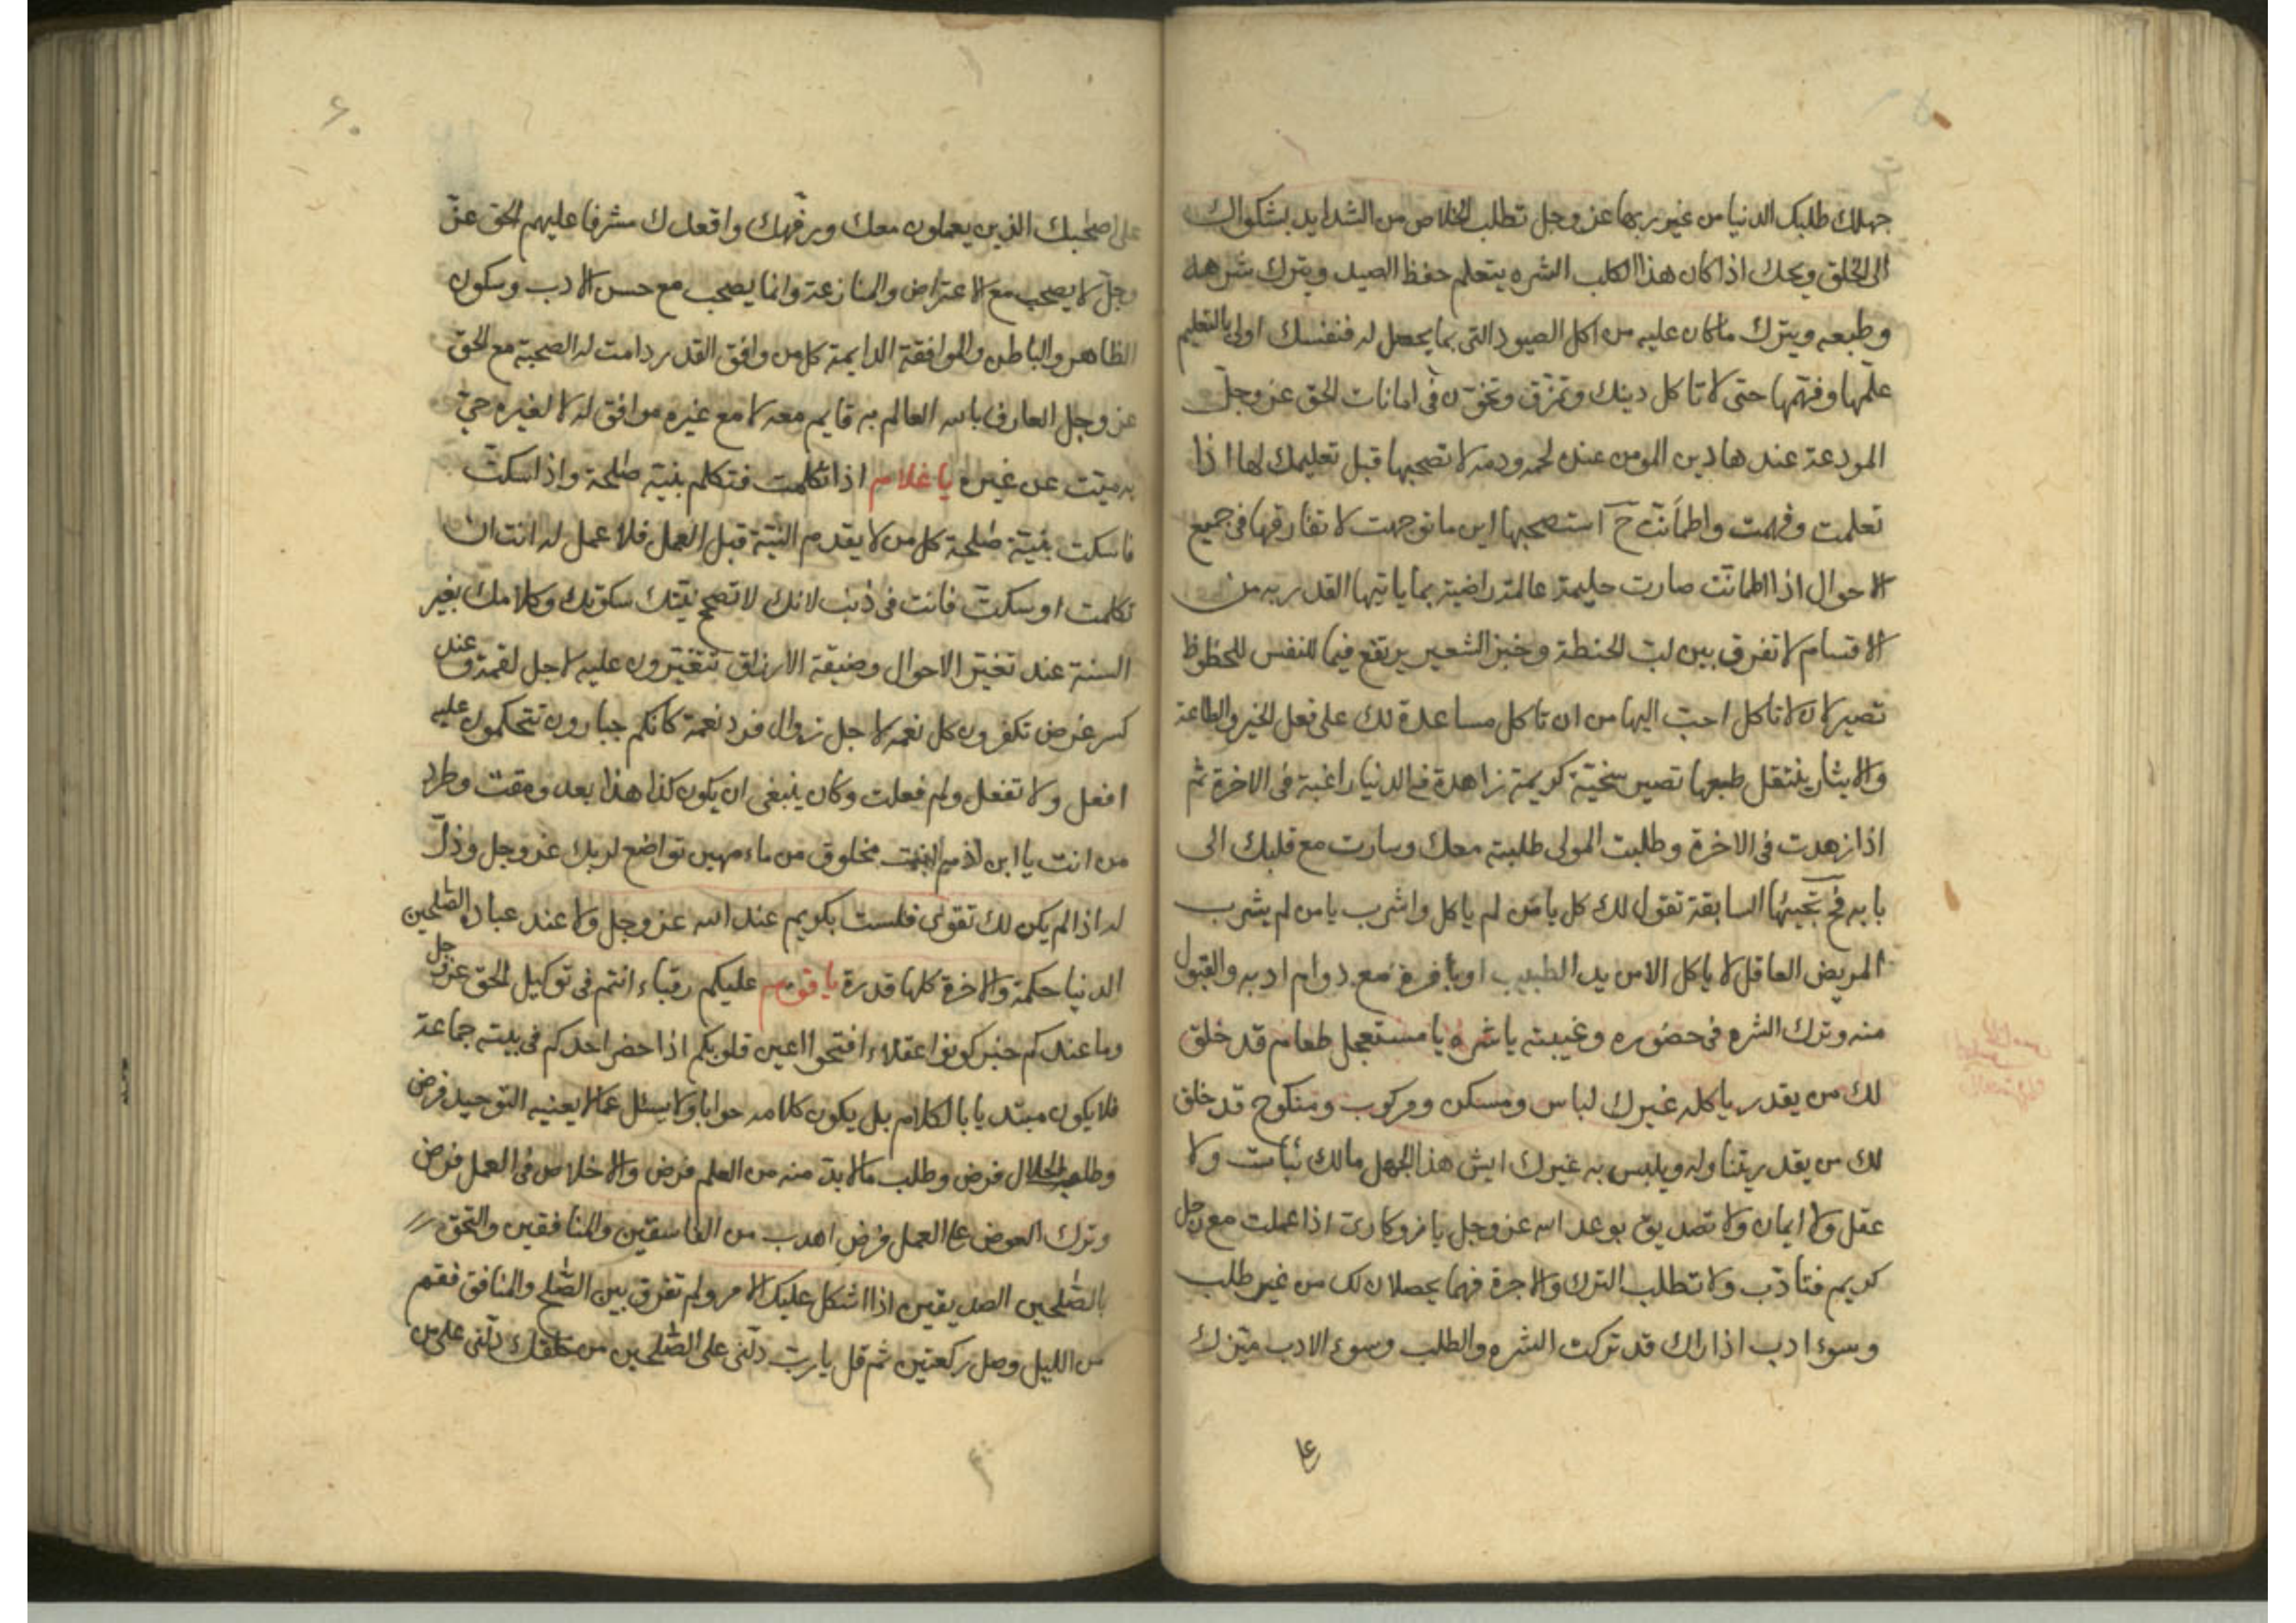 جهلك طلبك الدنيا من غير ربها عز وجل تطلب الخلاص من الشدايد بشكواك
الى الخلق ويحك اذا كان هذا الكلب الشره يتعلم حفظ الصيد ويترك شرهه
وطبعه ويترك ما كان عليه من اكل الصيود التى بما يحصل له فنفسك اولى بالتعليم
علّمها وفهّمها حتى لا تاكل دينك وتمزّق وتخوّن فى امانات الحق عز وجلّ
المودعة عندها دين المومن عنده لحمه ودمه لا تصحبها قبل تعليمك لها اذا
تعلمت وفهمت واطمأنّت ح استصحبها اين ما توجهت لا تفارقها فى جميع
الاحوال اذا اطمانّت صارت حليمة عالمة راضية بما ياتيها القدر به من
الاقسام لا تفرق بين لبّ الحنطة وخبز الشعير يرتفع فيما للنفس للحظوظ
تصير لان لا تاكل احبّ اليها من ان تاكل مساعدة لك على فعل الخير والطاعة
والايثار ينتقل طبعها تصير سخيّة كريمة زاهدة فى الدنيا راغبة فى الاخرة ثم
اذا زهدت فى الاخرة وطلبت المولى طلبته معك وسارت مع قلبك الى
بابه فح تجيئها السابقة تقول لك كل يا من لم ياكل واشرب يا من لم يشرب
المريض العاقل لا ياكل الا من يد الطبيب او بامره مع دوام ادبه والقبول
منه وترك الشره فى حضوره وغيبته يا شره يا مستعجل طعام قد خلق
لك من يقدر ياكله غيرك لباس ومسكن ومركوب ومنكوح قد خلق
لك من يقدر يتناوله ويلبس به غيرك ايش هذا الجهل مالك ثبات ولا
عقل ولا ايمان ولا تصديق بوعد الله عز وجل يا روزكارى اذا عملت مع رجل
كريم فتأدّب ولا تطلب الترك والاجرة فهما يحصلان لك من غير طلب
وسوء ادب اذا راك قد تركت الشره والطلب وسوء الادب ميّزك
على
۶۰
على اصحبك الذين يعملون معك ورفّهك واقعدك مشرفا عليهم الحق عزّ
وجلّ لا يصحب مع الاعتراض والمنازعة وانما يصحب مع حسن الادب وسكون
الظاهر والباطن والموافقة الدايمة كل من وافق القدر دامت له الصحبة مع الحق
عز وجل العارف بالله العالم به قايم معه لا مع غيره موافق له لا لغيره حيّ
به ميّت عن غيره يا غلام اذا تكلمت فتكلم بنية صلحة واذا سكتّ
فاسكت بنيّة صلحة كل من لا يقدم النيّة قبل العمل فلا عمل له انت ان
تكلمت او سكتّ فانت فى ذنب لانك لا تصحح نيّتك سكوتك وكلامك بغير
السنة عند تغيّر الاحوال وضيقة الارزاق تتغيّرون عليه لاجل لقمة وعند
كسر غرض تكفرون كل نعمه لاجل زوال فرد نعمة كانكم جبارون تتحكمون عليه
افعل ولا تفعل ولم فعلت وكان ينبغى ان يكون كذا هذا بعد ومقت وطرد
من انت يا ابن ادم انت مخلوق من ماء مهين تواضع لربك عز وجل وذلّ
له اذا لم يكن لك تقوى فلست بكريم عند الله عز وجل ولا عند عباده الصّلحين
الدنيا حكمة والاخرة كلها قدرة يا قوم عليكم رقباء انتم فى توكيل الحق عز وجل
وما عندكم خبر كونوا عقلاء افتحوا اعين قلوبكم اذا حضر احدكم فى بيته جماعة
فلا يكون مبتديا بالكلام بل يكون كلامه جوابا ولا يسئل عما لا يعنيه التوحيد فرض
وطلب الحلال فرض وطلب ما لابدّ منه من العلم فرض والاخلاص فى العمل فرض
وترك العوض على العمل فرض اهرب من الفاسقين والمنافقين والتحق
بالصّلحين الصديقين اذا اشكل عليك الامر ولم تفرق بين الصّلح والمنافق فقم
من الليل وصل ركعتين ثم قل يا ربّ دلّنى على الصّلحين من خلقك دلّنى على من